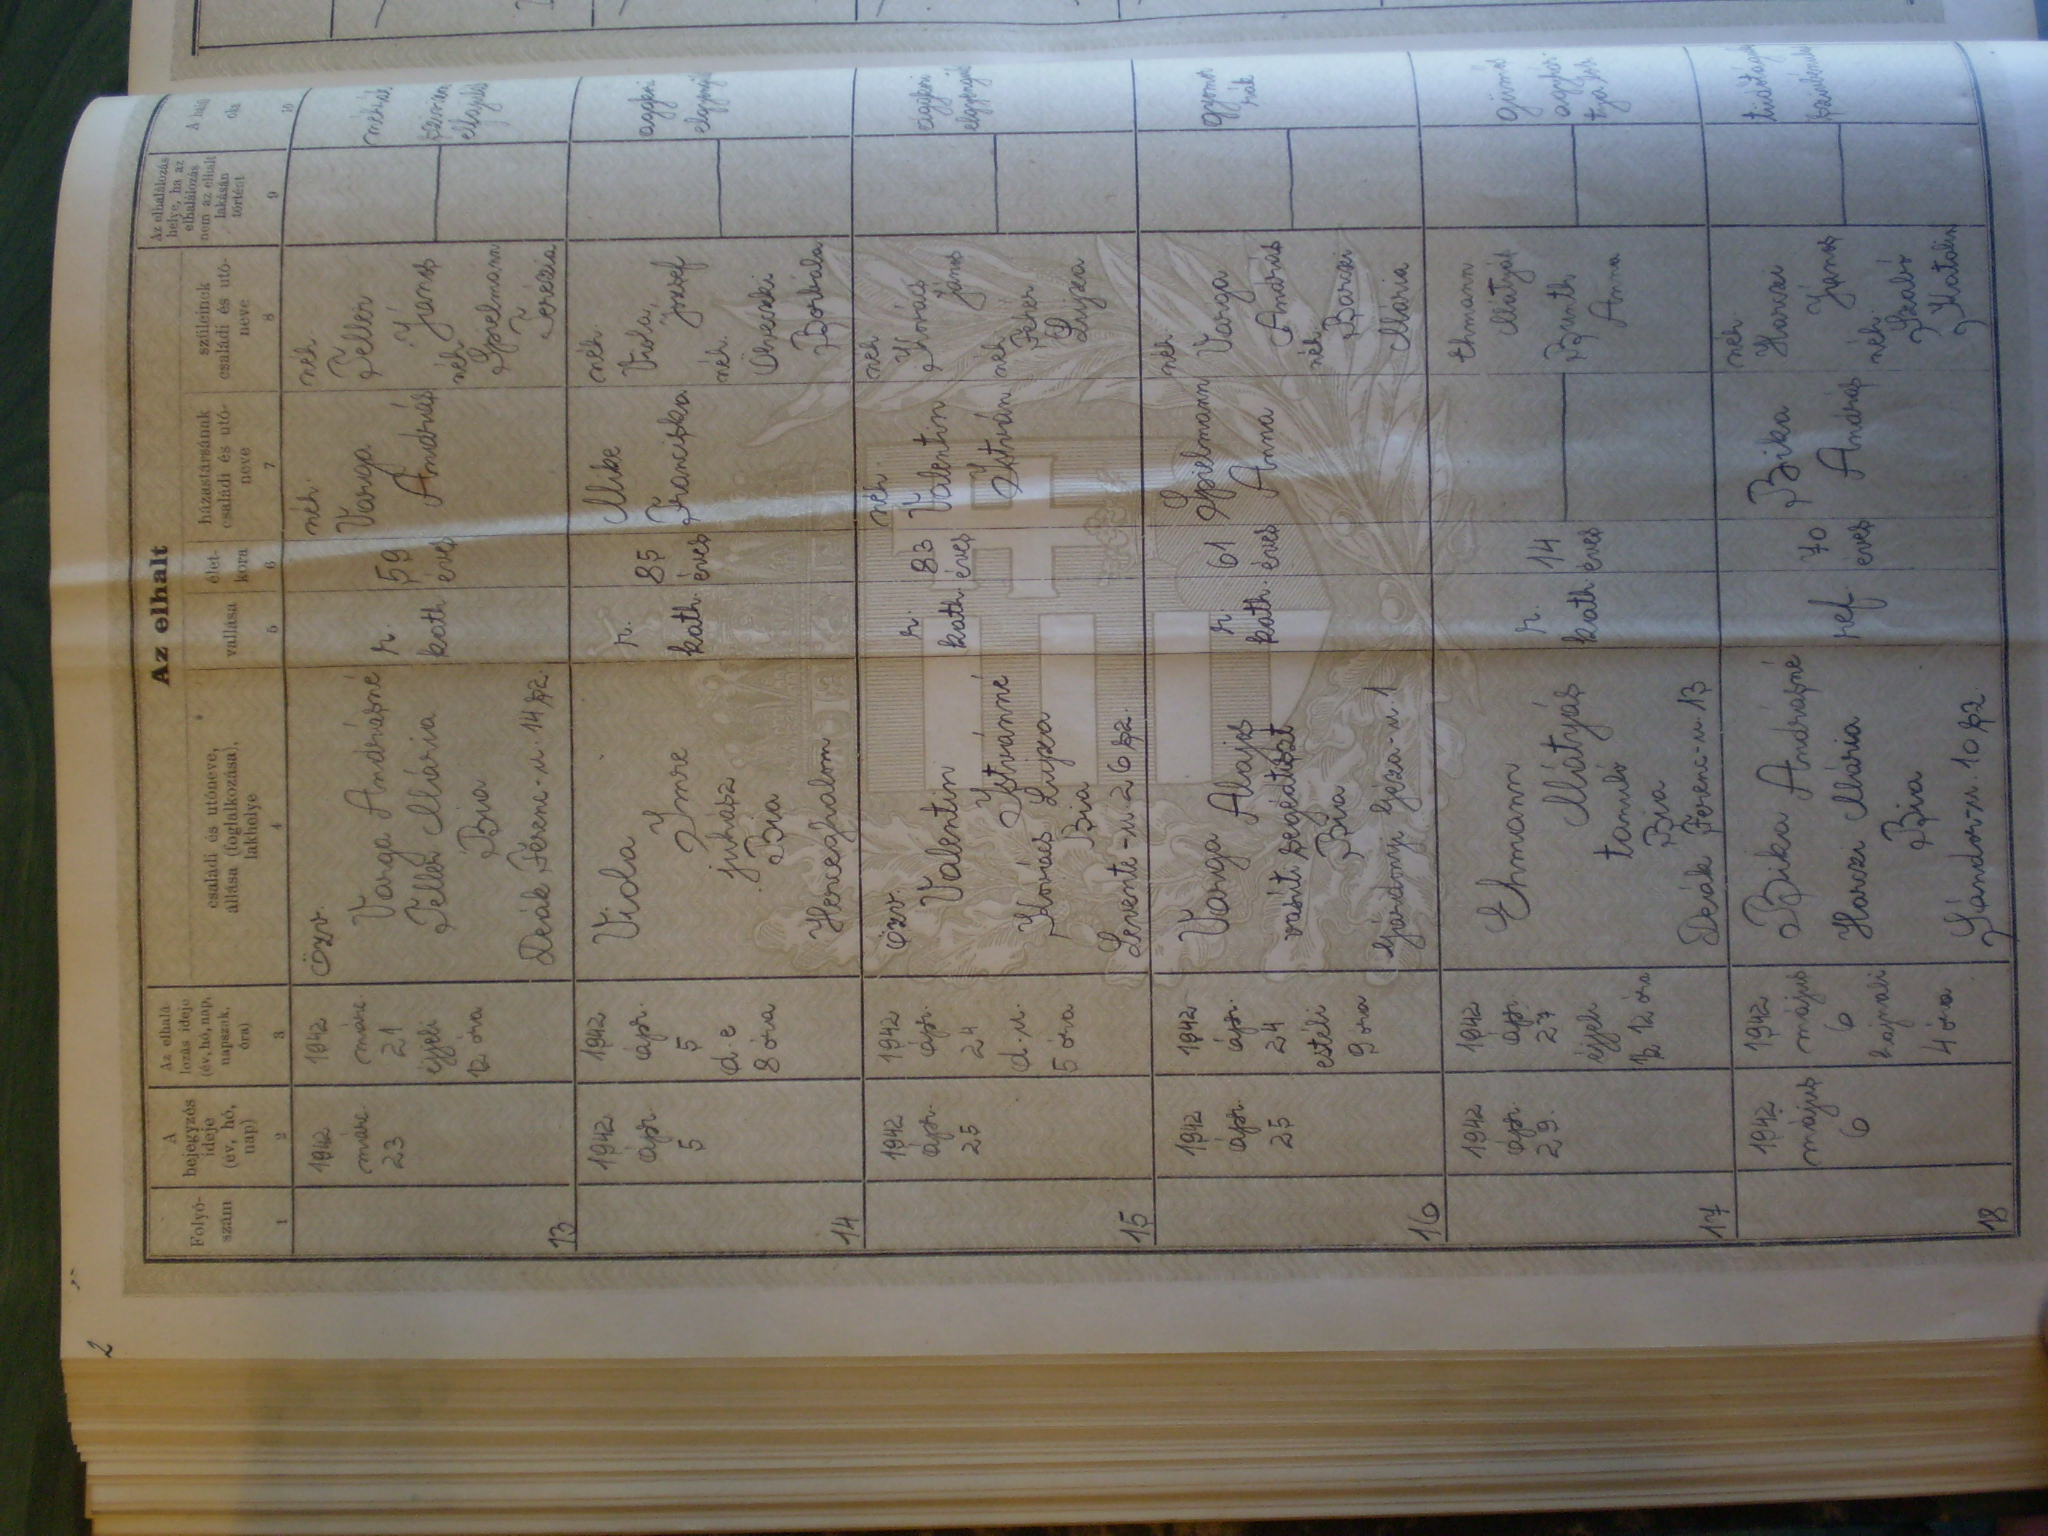 2
Az elhalt
Folyó-
szám
A
bejegyzés
ideje
(év, hó,
nap)
Az elhalá
lozás ideje
(év, hó, nap,
napszak,
óra)
családi és utóneve,
állása (foglalkozása),
lakhelye
vallása
élet-
kora
házastársának
családi és utó-
neve
szüleinek
családi és utó-
neve
Az elhalálozás
helye, ha az
elhalálozás
nem az elhalt
lakásán
történt
A halál
oka
1
2
3
4
5
6
7
8
9
10
13
1942
márc.
23
1942
márc.
21
éjjeli
12 óra
özv.
Varga Andrásné
Feller Mária
Bia
Deák Ferenc-u. 14 sz.
r.
kath
59
éves
néh.
Varga
András
néh.
Feller
János
néh.
Spielmann
Terézia
méhrák
14
1942
ápr.
5
1942
ápr.
5
d. e
8 óra
Vida
Imre
juhász
Bia
Herceghalom
r.
kath.
85
éves
Mike
Franciska
néh
Vida
József
néh.
Borbála
aggkori
elgyengülés
15
1942
ápr.
25
1942
ápr.
24
d. u.
5 óra
özv.
Valentin
Istvánné
Kovács Lujza
Bia
Levente-u 26 sz.
r.
kath.
83
éves
néh.
Valentin
István
néh
Kovács
János
néh
Fehér
Lujza
aggkori
elgyengülés
16
1942
ápr.
25
1942
ápr.
24
esteli
9 óra
Varga Alajos
vasúti segédtiszt
Bia
Gárdonyi Géza-u. 1
r.
kath.
61
éves
Spielmann
Anna
néh.
Varga
András
néh.
Bariczi
Mária
gyomor
rák
17
1942
ápr.
29.
1942
ápr.
27
éjjeli
12 óra
Ehmann
Mátyás
tanuló
Bia
Deák Ferenc-u. 13
r.
kath.
14
éves
Ehmann
Mátyás
Anna
18
1942
május
6
1942
május
6
hajnali
4 óra
Bika Andrásné
Harczi Mária
Bia
Sándor-u. 10 sz.
ref
70
éves
Bika
András
néh
Harczi
János
néh.
Szabó
Katalin